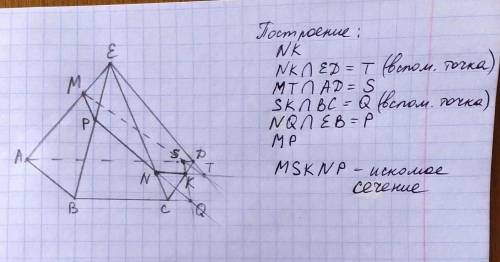 Построение:
NK
NK∩ED = T (вспом. точка)
MT∩AD = S
SK∩BC = Q (вспом. точка)
NQ∩EB = P
MP
MSKNP – искомое
сечение
E
M
P
A
S
D
N
K
T
B
C
Q